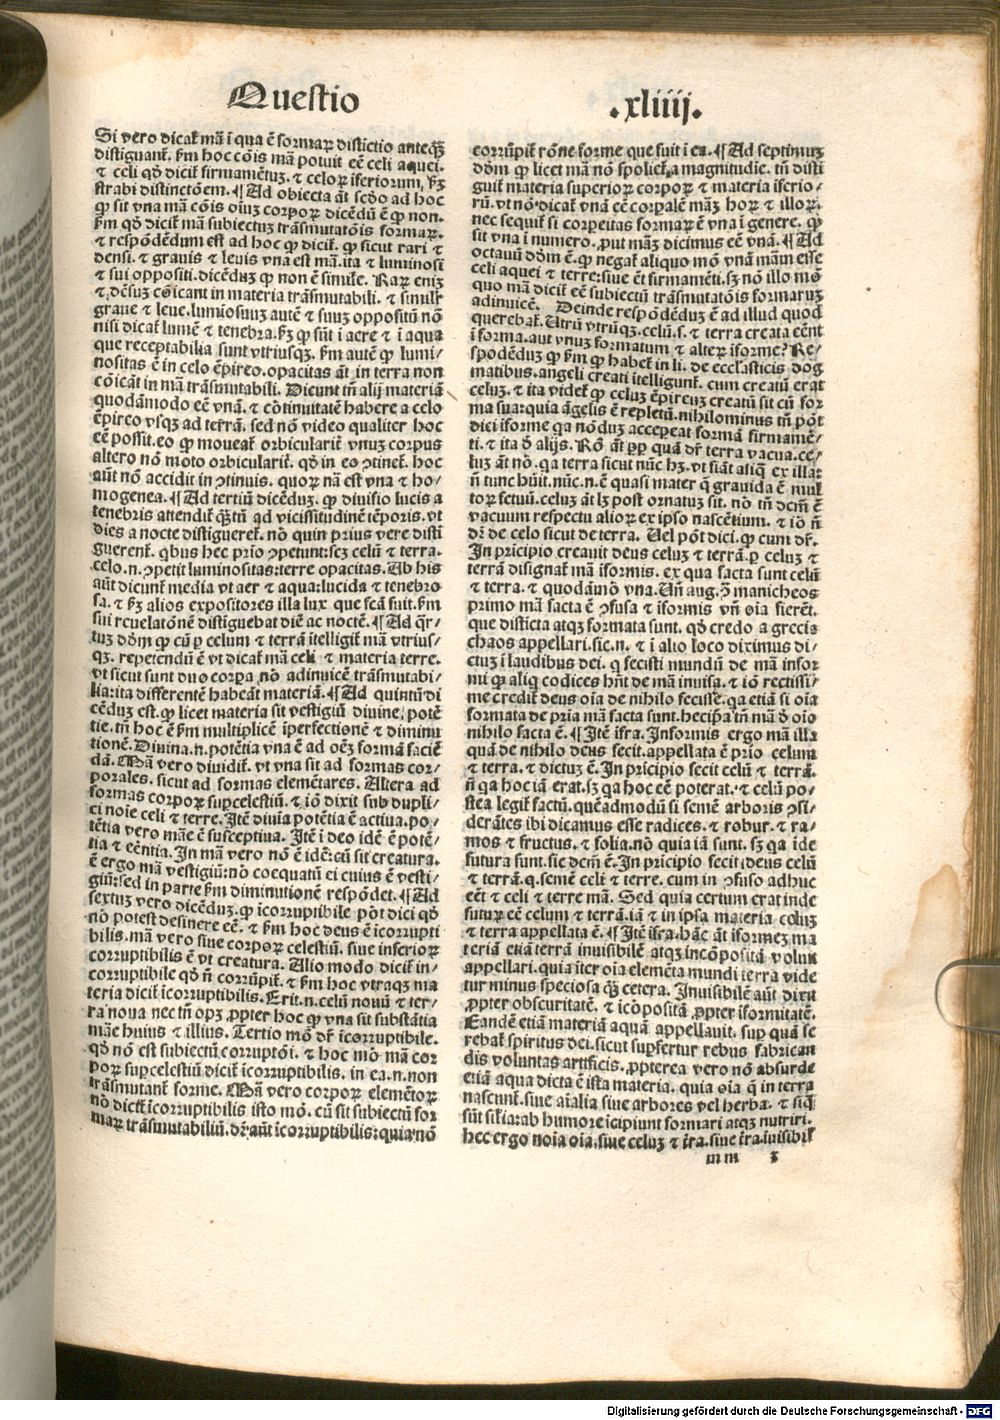 Questio
.xliiij.
Si vero dicat̃ mã ĩ qua ẽ formaꝝ distictio anteqʒ̃
distiguant̃. ẜm hoc cõis mã potuit eẽ celi aquei.
⁊ celi qð dicit̃ firmamẽtuʒ. ⁊ celoꝝ ĩferiorum, ẜʒ
strabi distinctõem. ¶ Ad obiecta ãt scðo ad hoc
ꝙ sit vna mã cõis oĩuʒ corpoꝝ dicẽdũ ẽ ꝙ non.
ẜm qð dicit̃ mã subiectuʒ trãsmutatõis formaꝝ.
⁊ respõdẽdum est ad hoc ꝙ dicit̃. ꝙ sicut rari ⁊
densi. ⁊ grauis ⁊ leuis vna est mã. ita ⁊ luminosi
⁊ sui oppositi. dicẽduʒ ꝙ non ẽ simile. Raꝝ eniʒ
⁊ dẽsuʒ cõicant in materia trãsmutabili. ⁊ simulr̃
graue ⁊ leue. lumiosuuʒ autẽ ⁊ suuʒ oppositũ nõ
nisi dicat̃ lumẽ ⁊ tenebra. ẜʒ ꝙ sũt ĩ aere ⁊ ĩ aqua
que receptabilia sunt vtriusqʒ. ẜm autẽ ꝙ lumi/
nositas ẽ in celo ẽpireo. opacitas ãt in terra non
cõicãt in mã trãsmutabili. Dicunt tñ alij materiã
quodãmodo eẽ vnã. ⁊ cõtinuitatẽ habere a celo
ẽpireo vsqʒ ad terrã. sed nõ video qualiter hoc
eẽ possit. eo ꝙ moueat̃ orbiculariẽ vnuʒ corpus
altero nõ moto orbicularit̃. qð in eo ꝯtinet̃. hoc
aũt nõ accidit in ꝯtinuis. quoꝝ nã est vna ⁊ ho/
mogenea. ¶ Ad tertiũ dicẽduʒ. ꝙ diuisio lucis a
tenebris attendit̃ qʒ̃tũ ad vicissitudinẽ tẽporis. vt
dies a nocte distigueret̃. nõ quin prius vere disti
guerent̃. qbus hec prio ꝯpetunt: scʒ celũ ⁊ terra.
celo. n. ꝯpetit luminositas: terre opacitas. Ab his
aũt dicunt̃ media vt aer ⁊ aqua: lucida ⁊ tenebro
sa. ⁊ ẜʒ alios expositores illa lux que fcã fuit. ẜm
sui reuelatõnẽ distiguebat diẽ ac noctẽ. ¶ Ad qr̃/
tuʒ dõm ꝙ cũ ꝑ celum ⁊ terrã ĩtelligit̃ mã vtrius/
qʒ. repetendũ ẽ vt dicat̃ mã celi ⁊ materia terre.
vt sicut sunt duo corpa nõ adinuicẽ trãsmutabi/
lia: ita differentẽ habeãt materiã. ¶ Ad quintũ di
cẽduʒ est. ꝙ licet materia sit vestigiũ diuine potẽ
tie. tñ hoc ẽ ẜm multiplicẽ ĩperfectionẽ ⁊ diminu
tionẽ. Diuina .n. potẽtia vna ẽ ad oẽʒ formã faciẽ
dã. Mã vero diuidit̃. vt vna sit ad formas cor/
porales. sicut ad formas elemẽtares. Altera ad
formas corpoꝝ suꝑcelestiũ. ⁊ iõ dixit sub dupli/
ci noĩe celi ⁊ terre. Itẽ diuĩa potẽtia ẽ actiua. po/
tẽtia vero mãe ẽ susceptiua. Itẽ ĩ deo idẽ ẽ potẽ/
tia ⁊ eẽntia. In mã vero nõ ẽ idẽ: cũ sit creatura.
ẽ ergo mã vestigiũ: nõ coequatũ ei cuius ẽ vesti/
giũ: sed in parte ẜm diminutionẽ respõdet. ¶ Ad
sextuʒ vero dicẽduʒ. ꝙ ĩcorruptibile põt dici qð
nõ potest desinere eẽ. ⁊ ẜm hoc deus ẽ ĩcorrupti
bilis. mã vero siue corpoꝝ celestiũ. siue inferioꝝ
corruptibilis ẽ vt creatura. Alio modo dicit̃ in/
corruptibile qð ñ corrũpit̃. ⁊ ẜm hoc vtraqʒ ma
teria dicit̃ ĩcorruptibilis. Erit .n. celũ nouũ ⁊ ter/
ra noua nec tñ opʒ ꝓpter hoc ꝙ vna sit substãtia
mãe huius ⁊ illius. Tertio mõ dr̃ ĩcorruptibile.
qð nõ est subiectũ corruptõi. ⁊ hoc mõ mã cor
poꝝ suꝑcelestiũ dicit̃ ĩcorruptibilis. in ea .n. non
trãsmutant̃ forme. Mã vero corpoꝝ elemẽtoꝝ
nõ dicit̃ ĩcorruptibilis isto mõ. cũ sit subiectũ for
maꝝ trãsmutabiliũ. dr̃ aũt ĩcorruptibilis: quia nõ
corrũpit̃ rõne forme que fuit ĩ ea. ¶ Ad septimuʒ
dõm ꝙ licet mã nõ spoliet̃ a magnitudie. tñ disti
guit̃ materia superioꝝ corpoꝝ ⁊ materia ĩferio/
rũ. vt nõ dicat̃ vnã eẽ corpalẽ mãʒ hoꝝ ⁊ illoꝝ.
nec sequit̃ si corpeitas formaꝝ ẽ vna ĩ genere. ꝙ
sit vna ĩ numero. ꝓut mãʒ dicimus eẽ vnã. ¶ Ad
octauũ dõm ẽ. ꝙ negat̃ aliquo mõ vnã mãm esse
celi aquei ⁊ terre: siue ẽt firmamẽti. sʒ nõ illo mõ
quo mã dicit̃ eẽ subiectũ trãsmutatõis formaruʒ
adinuicẽ. Deinde respõdẽduʒ ẽ ad illud quod
querebat̃. Utrũ vtrũqʒ. celũ .s. ⁊ terra creata eẽnt
ĩ forma. aut vnuʒ formatum ⁊ alteꝝ ĩforme? Re/
spõdẽduʒ ꝙ ẜm ꝙ habet̃ in li. de ecclesticis dog
matibus. angeli creati ĩtelligunt̃. cum creatũ erat
celuʒ. ⁊ ita videt̃ ꝙ celuʒ ẽpireuʒ creatũ sit cũ for
ma sua: quia ãgelis ẽ repletũ. nihilominus tñ põt
dici ĩforme qa nõduʒ acceperat formã firmamẽ/
ti. ⁊ ita ð alijs. Rõ ãt ꝓp quã dr̃ terra vacua. ce/
luʒ ãt nõ. qa terra sicut nũc hʒ. vt siãt aliq̃ ex illa:
ñ tunc hũit. nũc .n. ẽ quasi mater q̃ grauida ẽ mul
toꝝ fetuũ. celuʒ ãt lʒ post ornatuʒ sit. nõ tñ dcm̃ ẽ
vacuum respectu alioꝝ ex ipso nascẽtium. ⁊ iõ ñ
dr̃ de celo sicut de terra. Uel põt dici. ꝙ cum dr̃.
In prĩcipio creauit deus celuʒ ⁊ terrã. ꝑ celuʒ ⁊
terrã disignat̃ mã ĩformis. ex qua facta sunt celũ
⁊ terra. ⁊ quodãmõ vna. Uñ aug. ꝯ̃ manicheos
primo mã facta ẽ ꝯfusa ⁊ ĩformis vñ oĩa fierẽt.
que disticta atqʒ formata sunt. qð credo a grecis
chaos appellari. sic .n. ⁊ ĩ alio loco diximus di/
ctuʒ ĩ laudibus dei. q fecisti mundũ de mã infor
mi ꝙ aliq codices hñt de mã inuisa. ⁊ iõ rectissi/
me credit̃ deus oĩa de nihilo fecisse. qa etiã si oĩa
formata de pria mã facta sunt. hec ipã tñ mã ð oĩo
nihilo facta ẽ. ¶ Itẽ ĩfra. Informis ergo mã illa
quã de nihilo deus fecit. appellata ẽ prĩo celum
⁊ terra. ⁊ dictuʒ ẽ. In prĩcipio fecit celũ ⁊ terrã.
ñ qa hoc iã erat. sʒ qa hoc eẽ poterat. ⁊ celũ po/
stea legit̃ factũ. quẽadmodũ si semẽ arboris ꝯsi/
derãtes ibi dicamus esse radices. ⁊ robur. ⁊ ra/
mos ⁊ fructus. ⁊ folia. nõ quia iã sunt. sʒ qa ĩde
futura sunt. sic dcm̃ ẽ. In prĩcipio fecit deus celũ
⁊ terrã. q. semẽ celi ⁊ terre. cum in ꝯfuso adhuc
eẽt ⁊ celi ⁊ terre mã. Sed quia certum erat inde
futuꝝ eẽ celum ⁊ terrã. iã ⁊ in ipsa materia celuʒ
⁊ terra appellata ẽ. ¶ Itẽ ĩfra. hãc ãt ĩformeʒ ma
teriã etiã terrã inuisibilẽ atqʒ incõpositã voluit
appellari. quia iter oĩa elemẽta mundi terra vide
tur minus speciosa qʒ̃ cetera. Inuisibilẽ aũt dixit
ꝓpter obscuritatẽ. ⁊ icõpositã ꝓpter ĩformitatẽ.
Eandẽ etiã materiã aquã appellauit. suꝑ quã fe
rebat̃ spiritus dei. sicut suꝑfertur rebus fabrican
dis voluntas artificis. ꝓpterea vero nõ absurde
etiã aqua dicta ẽ ista materia. quia oĩa q̃ in terra
nascunt̃. siue aĩalia siue arbores vel herba. ⁊ siq̃
sũt sil̃ia: ab humore icipiunt formari atqʒ nutriri.
hec ergo noĩa oĩa. siue celuʒ ⁊ t̃ra. siue t̃ra. iuisibil̃
mm